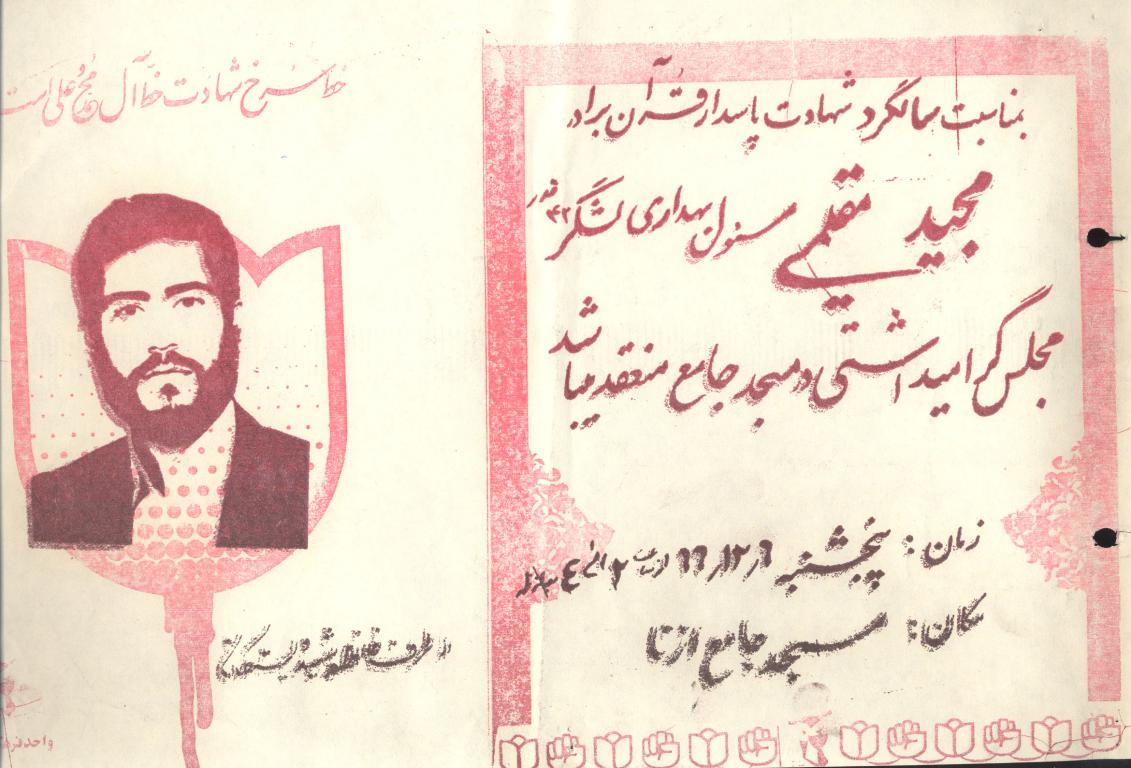 خط سرخ شهادت خط آل محمد و علی است
بمناسبت سالگرد شهادت پاسدار قرآن برادر
مجید مقیمی مسئول بهداری لشگر ۴۲ قدر
مجلس گرامیداشتی در مسجد جامع منعقد میباشد
زمان: پنجشنبه ۶ر۱۲ر۶۶ از ساعت ۲ الی ۴
مکان: مسجد جامع ازنا
از طرف خانواده شهید و بستگان
واحد فره